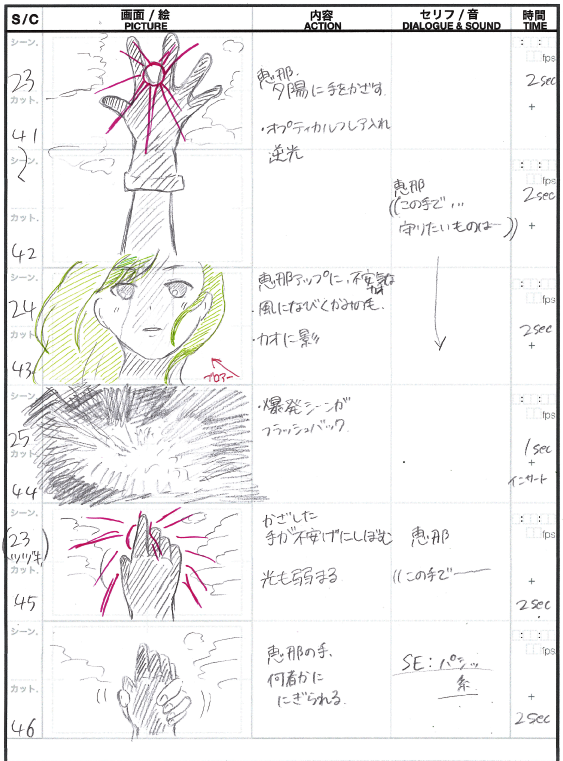 S/C
画面 / 絵
PICTURE
内容
ACTION
セリフ / 音
DIALOGUE & SOUND
時間
TIME
シーン.
23
カット.
41
恵那.
夕陽に手をかざす.
・オプティカルフレア入れ
逆光
: : :
fps
2sec
+
シーン.
カット.
42
恵那
((この手で...
守りたいものは—))
: : :
fps
2sec
+
シーン.
24
カット
43
ブロアー
恵那アップに、不安気な
・風になびくかみの毛.
・カオに影
: : :
fps
2sec
+
シーン
25
カット.
44
・爆発シーンが
フラッシュバック.
: : :
fps
1sec
+
インサート
シーン.
(23
ツヅキ)
カット.
45
かざした
手が不安げにしぼむ
光も弱まる
恵那
((この手で——
: : :
fps
+
2sec
シーン.
カット.
46
恵那の手.
何者かに
にぎられる.
SE:パシッ
系
: : :
fps
+
2sec